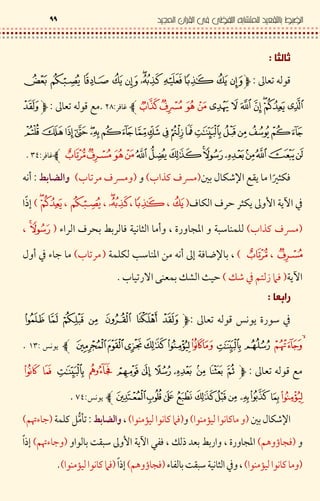 الضبط بالتقعيد للمتشابه اللفظي في القرآن المجيد ٩٩
ثالثا :
قوله تعالى : ﴿ وَإِن يَكُ كَٰذِبًا فَعَلَيْهِ كَذِبُهُۥ ۖ وَإِن يَكُ صَادِقًا يُصِبْكُم بَعْضُ
ٱلَّذِى يَعِدُكُمْ ۖ إِنَّ ٱللَّهَ لَا يَهْدِى مَنْ هُوَ مُسْرِفٌ كَذَّابٌ ﴾ غافر: ٢٨. مع قوله تعالى : ﴿ وَلَقَدْ
جَآءَكُمْ يُوسُفُ مِن قَبْلُ بِٱلْبَيِّنَٰتِ فَمَا زِلْتُمْ فِى شَكٍّ مِّمَّا جَآءَكُم بِهِۦ ۖ حَتَّىٰٓ إِذَا هَلَكَ قُلْتُمْ
لَن يَبْعَثَ ٱللَّهُ مِنۢ بَعْدِهِۦ رَسُولًا ۚ كَذَٰلِكَ يُضِلُّ ٱللَّهُ مَنْ هُوَ مُسْرِفٌ مُّرْتَابٌ ﴾ غافر: ٣٤ .
فكثيرًا ما يقع الإشكال بين (مسرف كذاب) و (ومسرف مرتاب) والضابط : أنه
في الآية الأولى يكثر حرف الكاف( يَكُ ، كَٰذِبًا ، كَذِبُهُۥ ، يُصِبْكُم ، يَعِدُكُمْ ) إذًا
(مسرف كذاب) للمناسبة و المجاورة ، وأما الثانية فالربط بحرف الراء ( رَسُولًا ،
مُسْرِفٌ ، مُّرْتَابٌ ) ، بالإضافة إلى أنه من المناسب لكلمة (مرتاب) ما جاء في أول
الآية( فما زلتم في شك ) حيث الشك بمعنى الارتياب .
رابعا :
في سورة يونس قوله تعالى : ﴿ وَلَقَدْ أَهْلَكْنَا ٱلْقُرُونَ مِن قَبْلِكُمْ لَمَّا ظَلَمُوا۟
وَجَآءَتْهُمْ رُسُلُهُم بِٱلْبَيِّنَٰتِ وَمَا كَانُوا۟ لِيُؤْمِنُوا۟ ۚ كَذَٰلِكَ نَجْزِى ٱلْقَوْمَ ٱلْمُجْرِمِينَ ﴾ يونس: ١٣ .
مع قوله تعالى : ﴿ ثُمَّ بَعَثْنَا مِنۢ بَعْدِهِۦ رُسُلًا إِلَىٰ قَوْمِهِمْ فَجَآءُوهُم بِٱلْبَيِّنَٰتِ فَمَا كَانُوا۟
لِيُؤْمِنُوا۟ بِمَا كَذَّبُوا۟ بِهِۦ مِن قَبْلُ ۚ كَذَٰلِكَ نَطْبَعُ عَلَىٰ قُلُوبِ ٱلْمُعْتَدِينَ ﴾ يونس: ٧٤ .
الإشكال بين (وماكانوا ليؤمنوا) و(فما كانوا ليؤمنوا) ، والضابط : تأمُّل كلمة (جاءتهم)
و (فجاؤوهم) المجاورة ، واربط بعد ذلك ، ففي الآية الأولى سبقت بالواو (وجاءتهم) إذاً
(وما كانوا ليؤمنوا) ، وفي الثانية سبقت بالفاء (فجاؤوهم) إذاً (فما كانوا ليؤمنوا) .